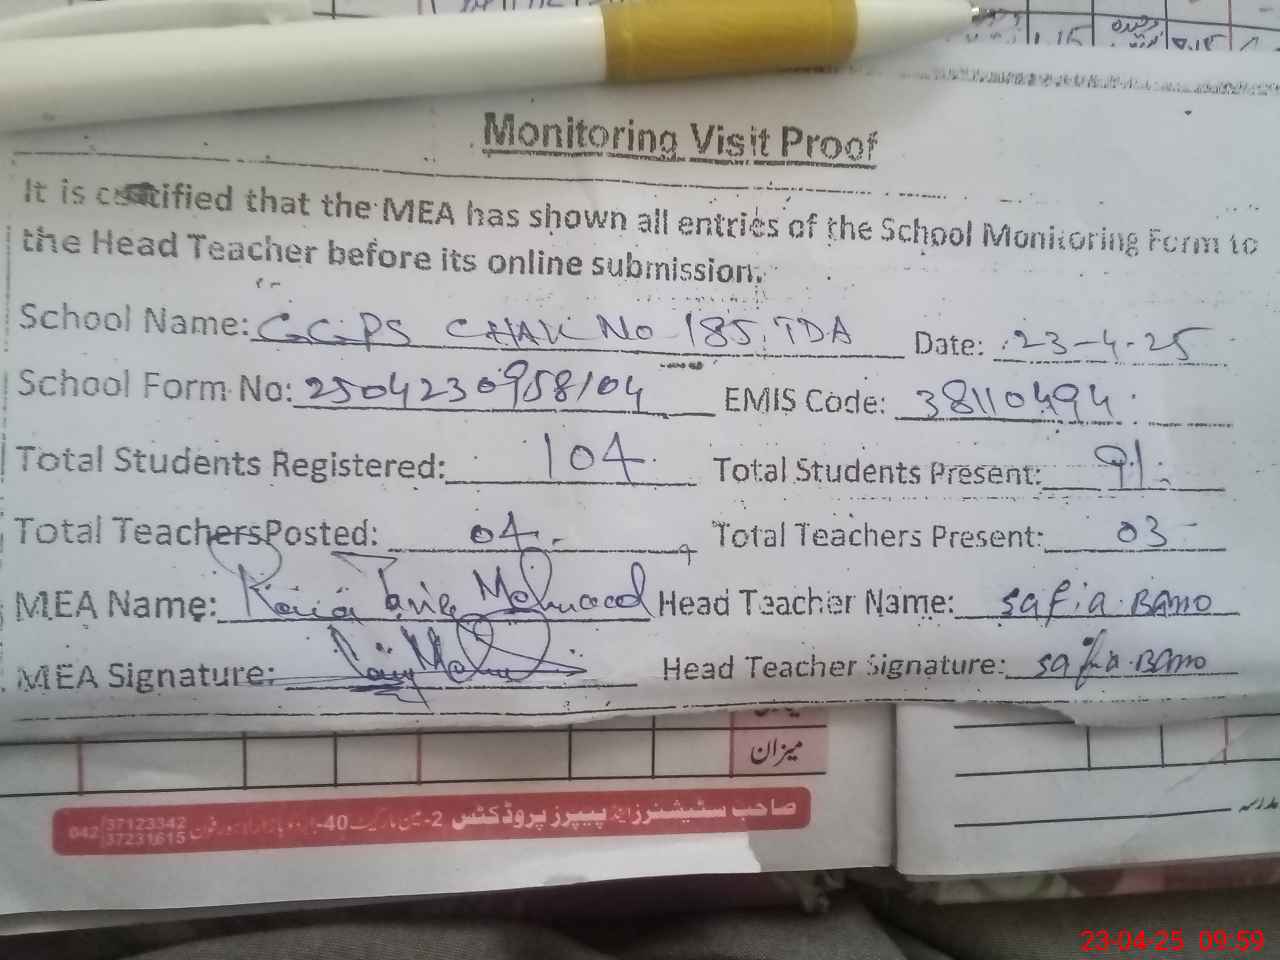 1.15
Monitoring Visit Proof
It is certified that the MEA has shown all entries of the School Monitoring Form to
the Head Teacher before its online submission.
School Name: GGPS CHAK No 185, TDA Date: 23-4-25
School Form No: 2504230958104 EMIS Code: 38110494
Total Students Registered: 104 Total Students Present: 91
Total Teachers Posted: 04 Total Teachers Present: 03
MEA Name: Mehmood Head Teacher Name: safia BANO
MEA Signature: Head Teacher Signature: safia BANO
میزان
صاحب سٹیشنرز اینڈ پیپرز پروڈکٹس 2- مین مارکیٹ 40- 042 37123342
37231615
23-04-25 09:59